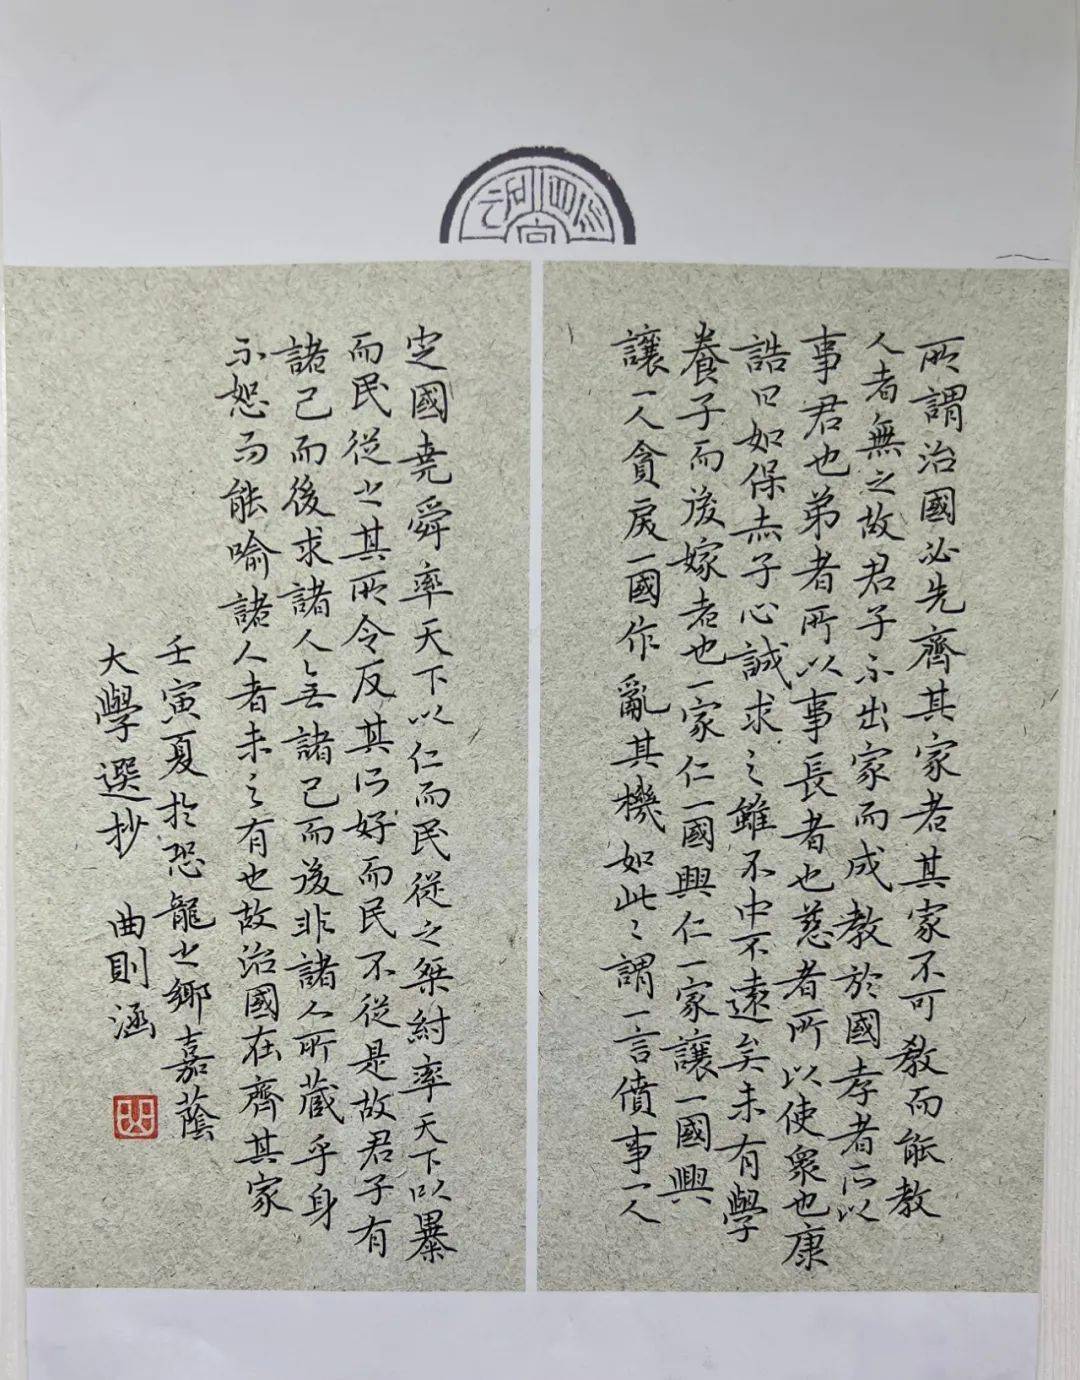 所謂治國必先齊其家者其家不可教而能教
人者無之故君子不出家而成教於國孝者所以
事君也弟者所以事長者也慈者所以使衆也康
誥曰如保赤子心誠求之雖不中不遠矣未有學
養子而後嫁者也一家仁一國興仁一家讓一國興
讓一人貪戾一國作亂其機如此此謂一言僨事一人
定國堯舜率天下以仁而民從之桀紂率天下以暴
而民從之其所令反其所好而民不從是故君子有
諸己而後求諸人無諸己而後非諸人所藏乎身
不恕而能喻諸人者未之有也故治國在齊其家
壬寅夏於恐龍之鄉嘉蔭
大學選抄 曲則涵